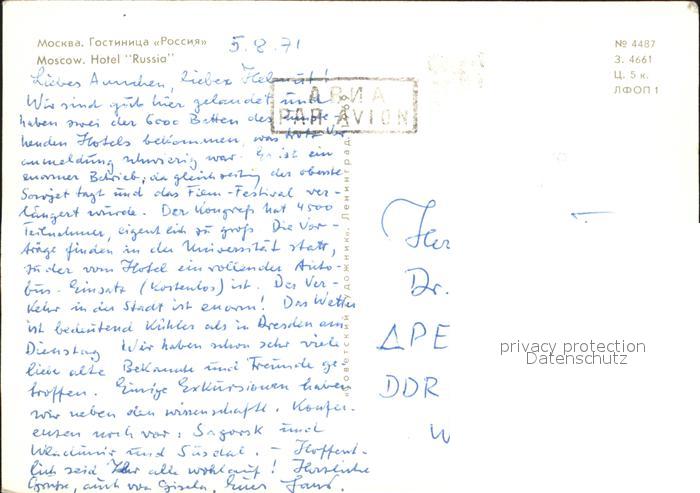 Москва. Гостиница «Россия»
Moscow. Hotel "Russia"
5.8.71
№ 4487
З. 4661
Ц. 5 к.
ЛФОП 1
АВИА
PAR AVION
Liebes Annchen, lieber Helmut!
Wir sind gut hier gelandet und
haben zwei der 6000 Betten des
henden Hotels bekommen, was trotz Vor-
anmeldung schwierig war. Es ist ein
enormer Betrieb, da gleichzeitig der oberste
Sowjet tagt und das Film-Festival ver-
längert wurde. Der Kongreß hat 4500
Teilnehmer, eigentlich zu groß. Die Vor-
träge finden in der Universität statt,
zu der vom Hotel ein rollender Auto-
bus-Einsatz (kostenlos) ist. Der Ver-
kehr in der Stadt ist enorm! Das Wetter
ist bedeutend kühler als in Dresden am
Dienstag. Wir haben schon sehr viele
liebe alte Bekannte und Freunde ge-
troffen. Einige Exkursionen haben
wir neben den wissenschaftl. Konfer-
enzen noch vor: Sagorsk und
Wladimir und Susdal. – Hoffent-
lich seid Ihr alle wohlauf! Herzliche
Grüße, auch von Gisela, Euer
«Советский художник». Ленинград. 1969
Her
Dr.
APE
DDR
W
privacy protection
Datenschutz